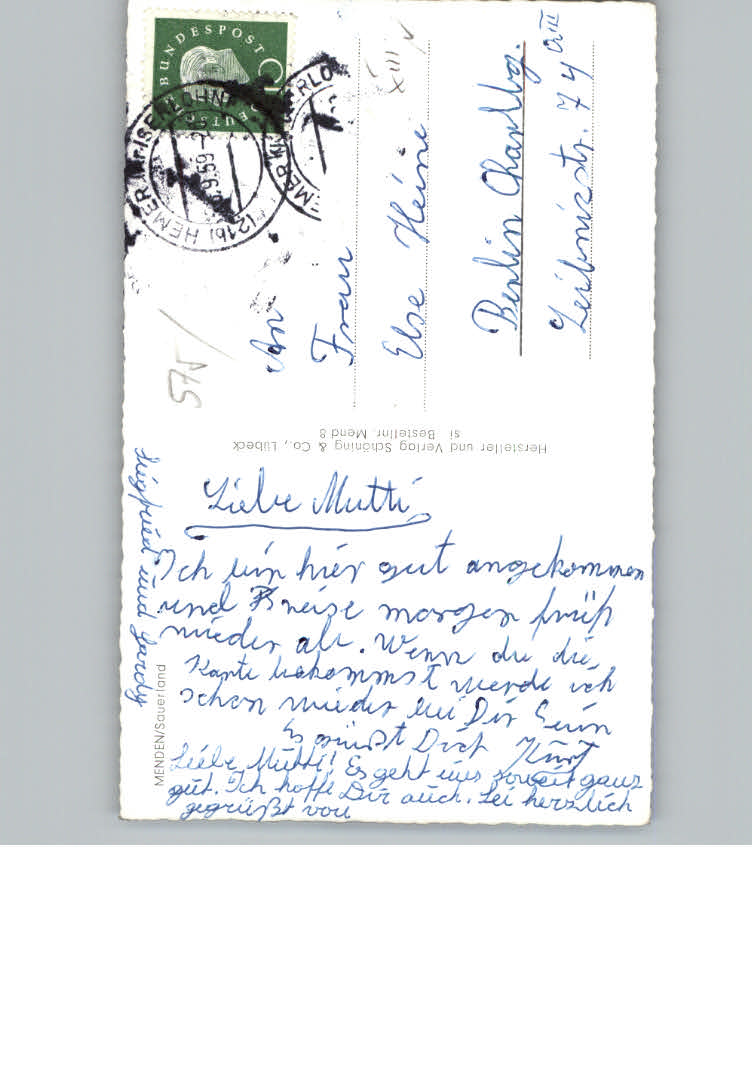 Liebe Mutti
Ich bin hier gut angekommen
und reise morgen früh
wieder ab. Wenn du die
Karte bekommst werde ich
schon wieder bei Dir sein
Es grüßt Dich Kurt
Liebe Mutti! Es geht uns soweit ganz
gut. Ich hoffe Dir auch. Sei herzlich
gegrüßt von
Siegfried und
MENDEN/Sauerland
Hersteller und Verlag Schöning & Co., Lübeck
si Bestellnr. Mend 8
DEUTSCHE
BUNDESPOST
(21b) HEMER (KR ISERLOHN)
An
Frau
Else Heine
Berlin Charlbg.
Leibnizstr. 74
575
XIII